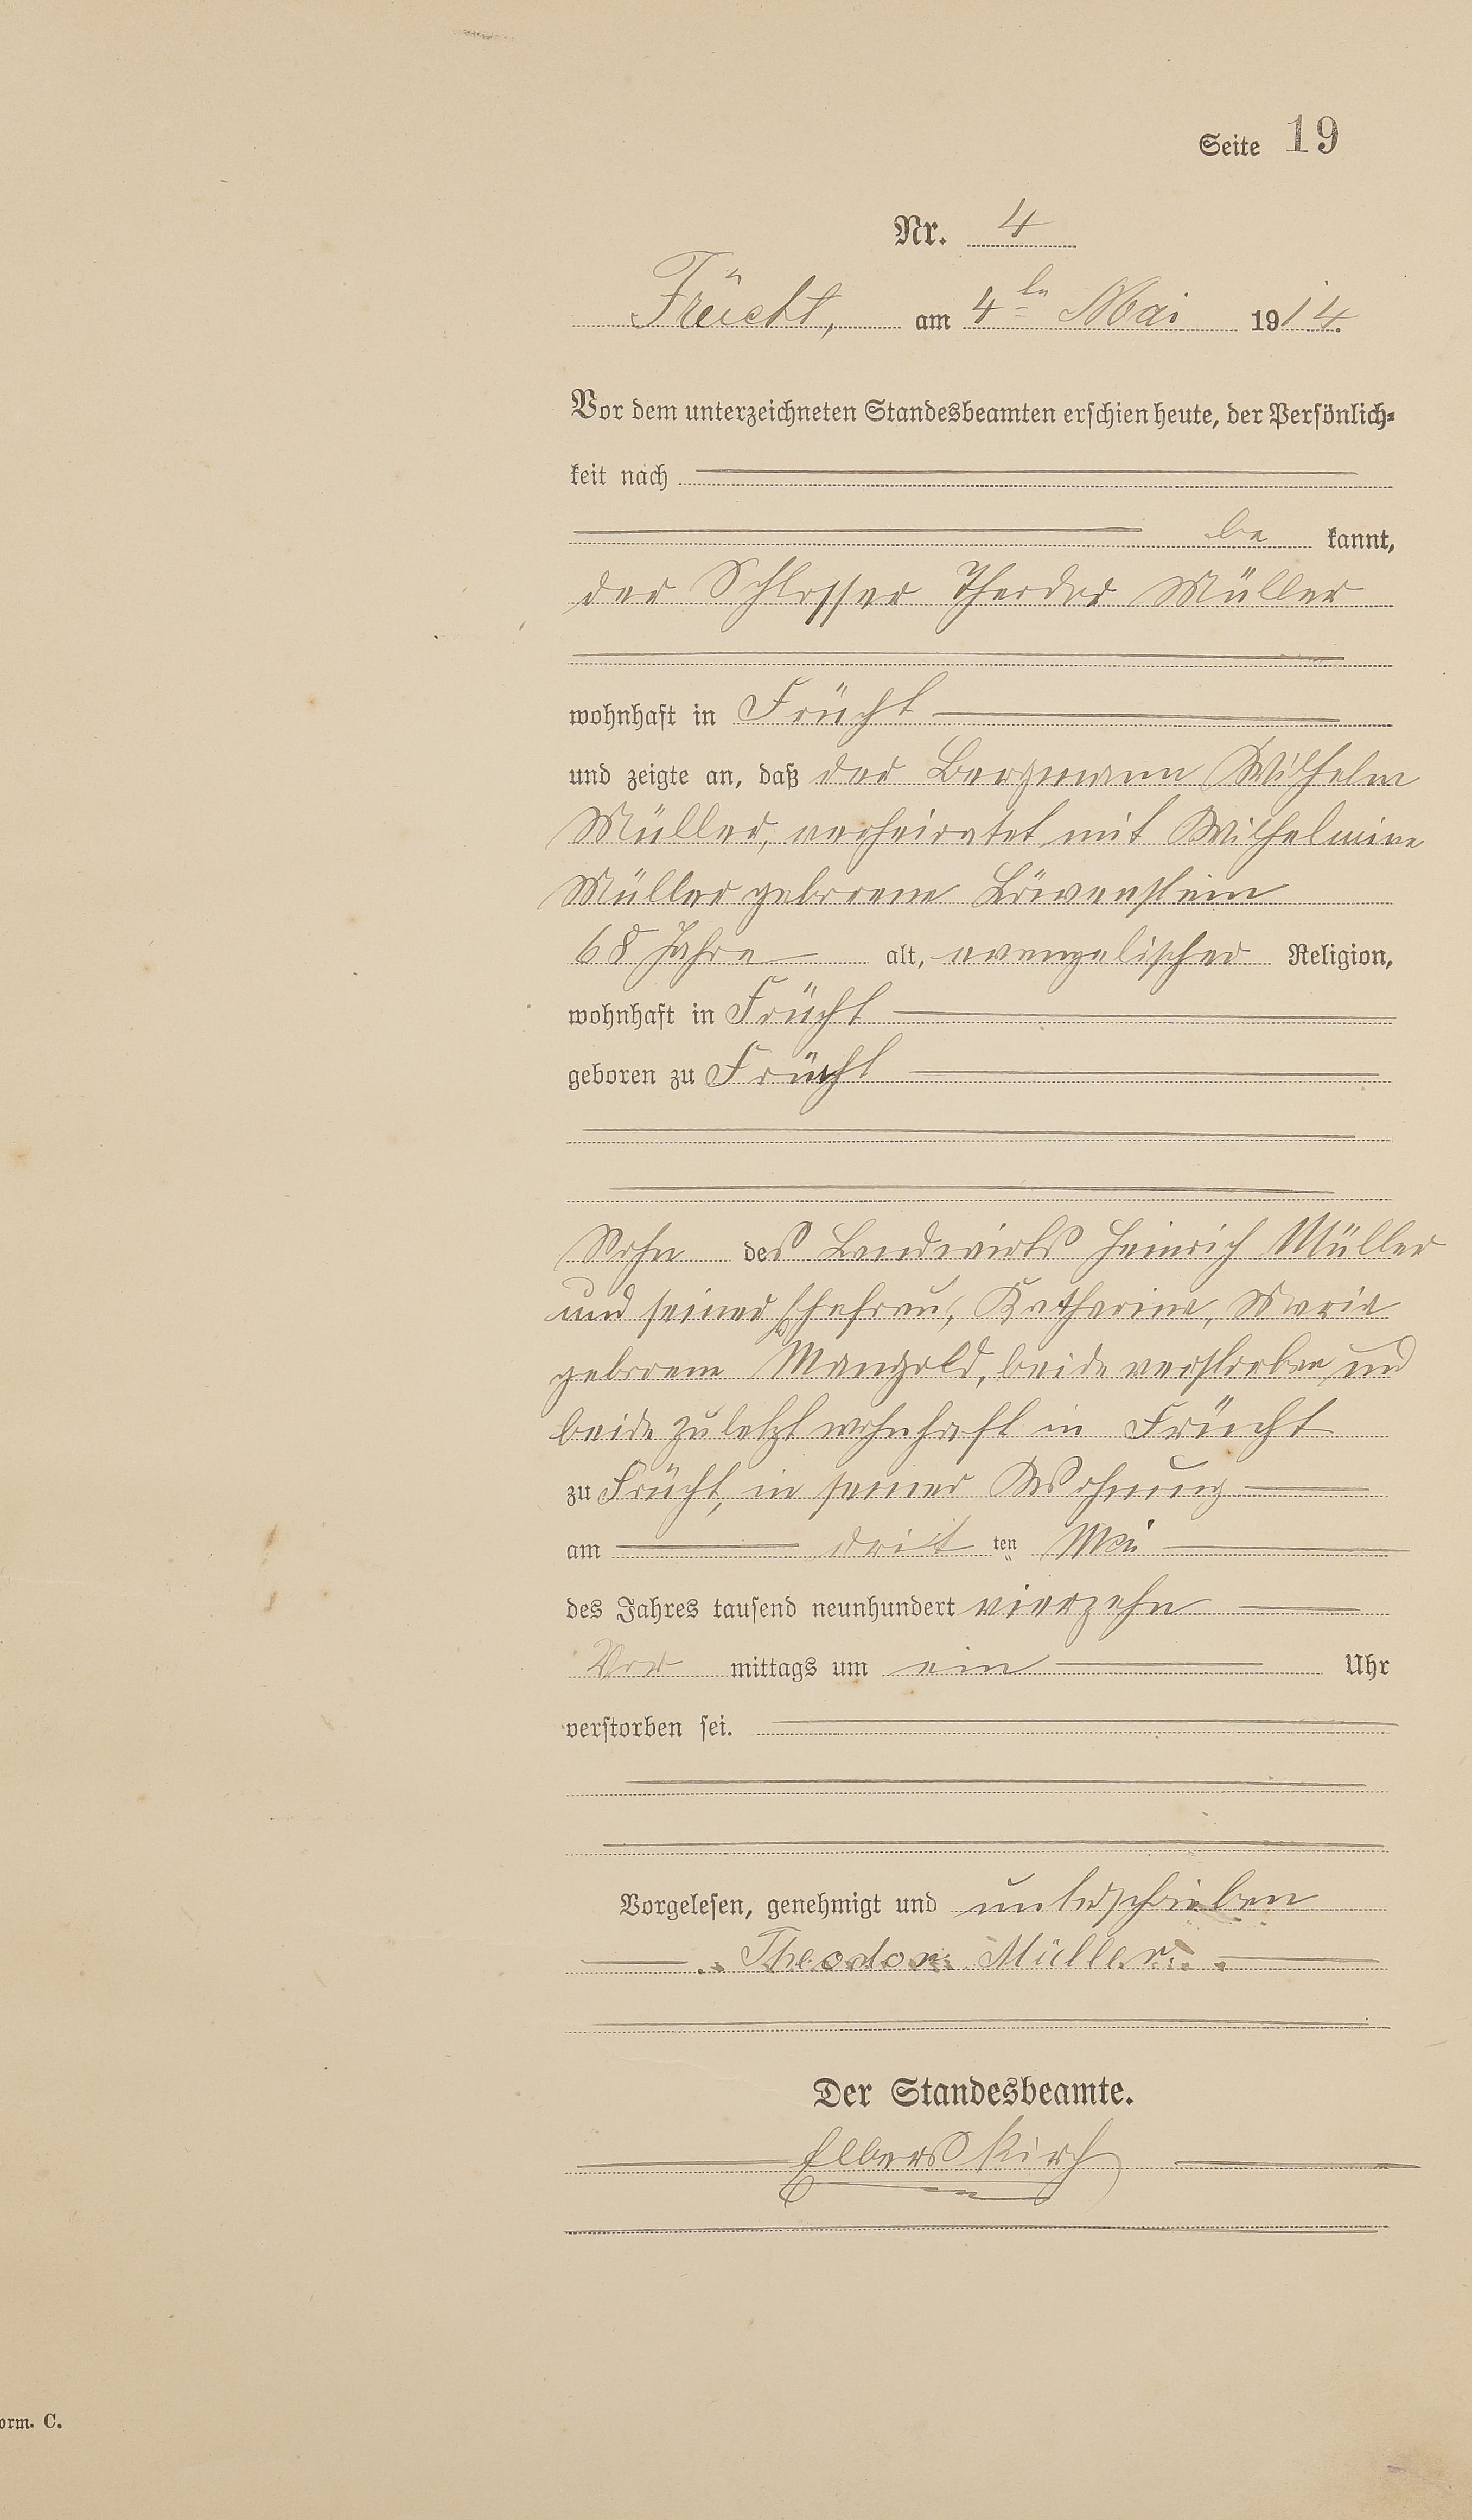 Seite 19
Nr. 4
Frücht, am 4ten Mai 1914.
Vor dem unterzeichneten Standesbeamten erschien heute, der Persönlich-
keit nach
be kannt,
der Schlosser Theodor Müller
wohnhaft in Frücht
und zeigte an, daß der Bergmann Wilhelm
Müller, verheiratet mit Wilhelmine
Müller geborene Löwenstein
68 Jahre alt, evangelischer Religion,
wohnhaft in Frücht
geboren zu Frücht
Sohn des Landwirts Heinrich Müller
und seiner Ehefrau, Katharine, Maria
geborene Mangold, beide verstorben und
beide zuletzt wohnhaft in Frücht
zu Frücht, in seiner Wohnung
am dritten Mai
des Jahres tausend neunhundert vierzehn
Vor mittags um ein Uhr
verstorben sei.
Vorgelesen, genehmigt und unterschrieben
Theodor Müller.
Der Standesbeamte.
Elberskirch
orm. C.